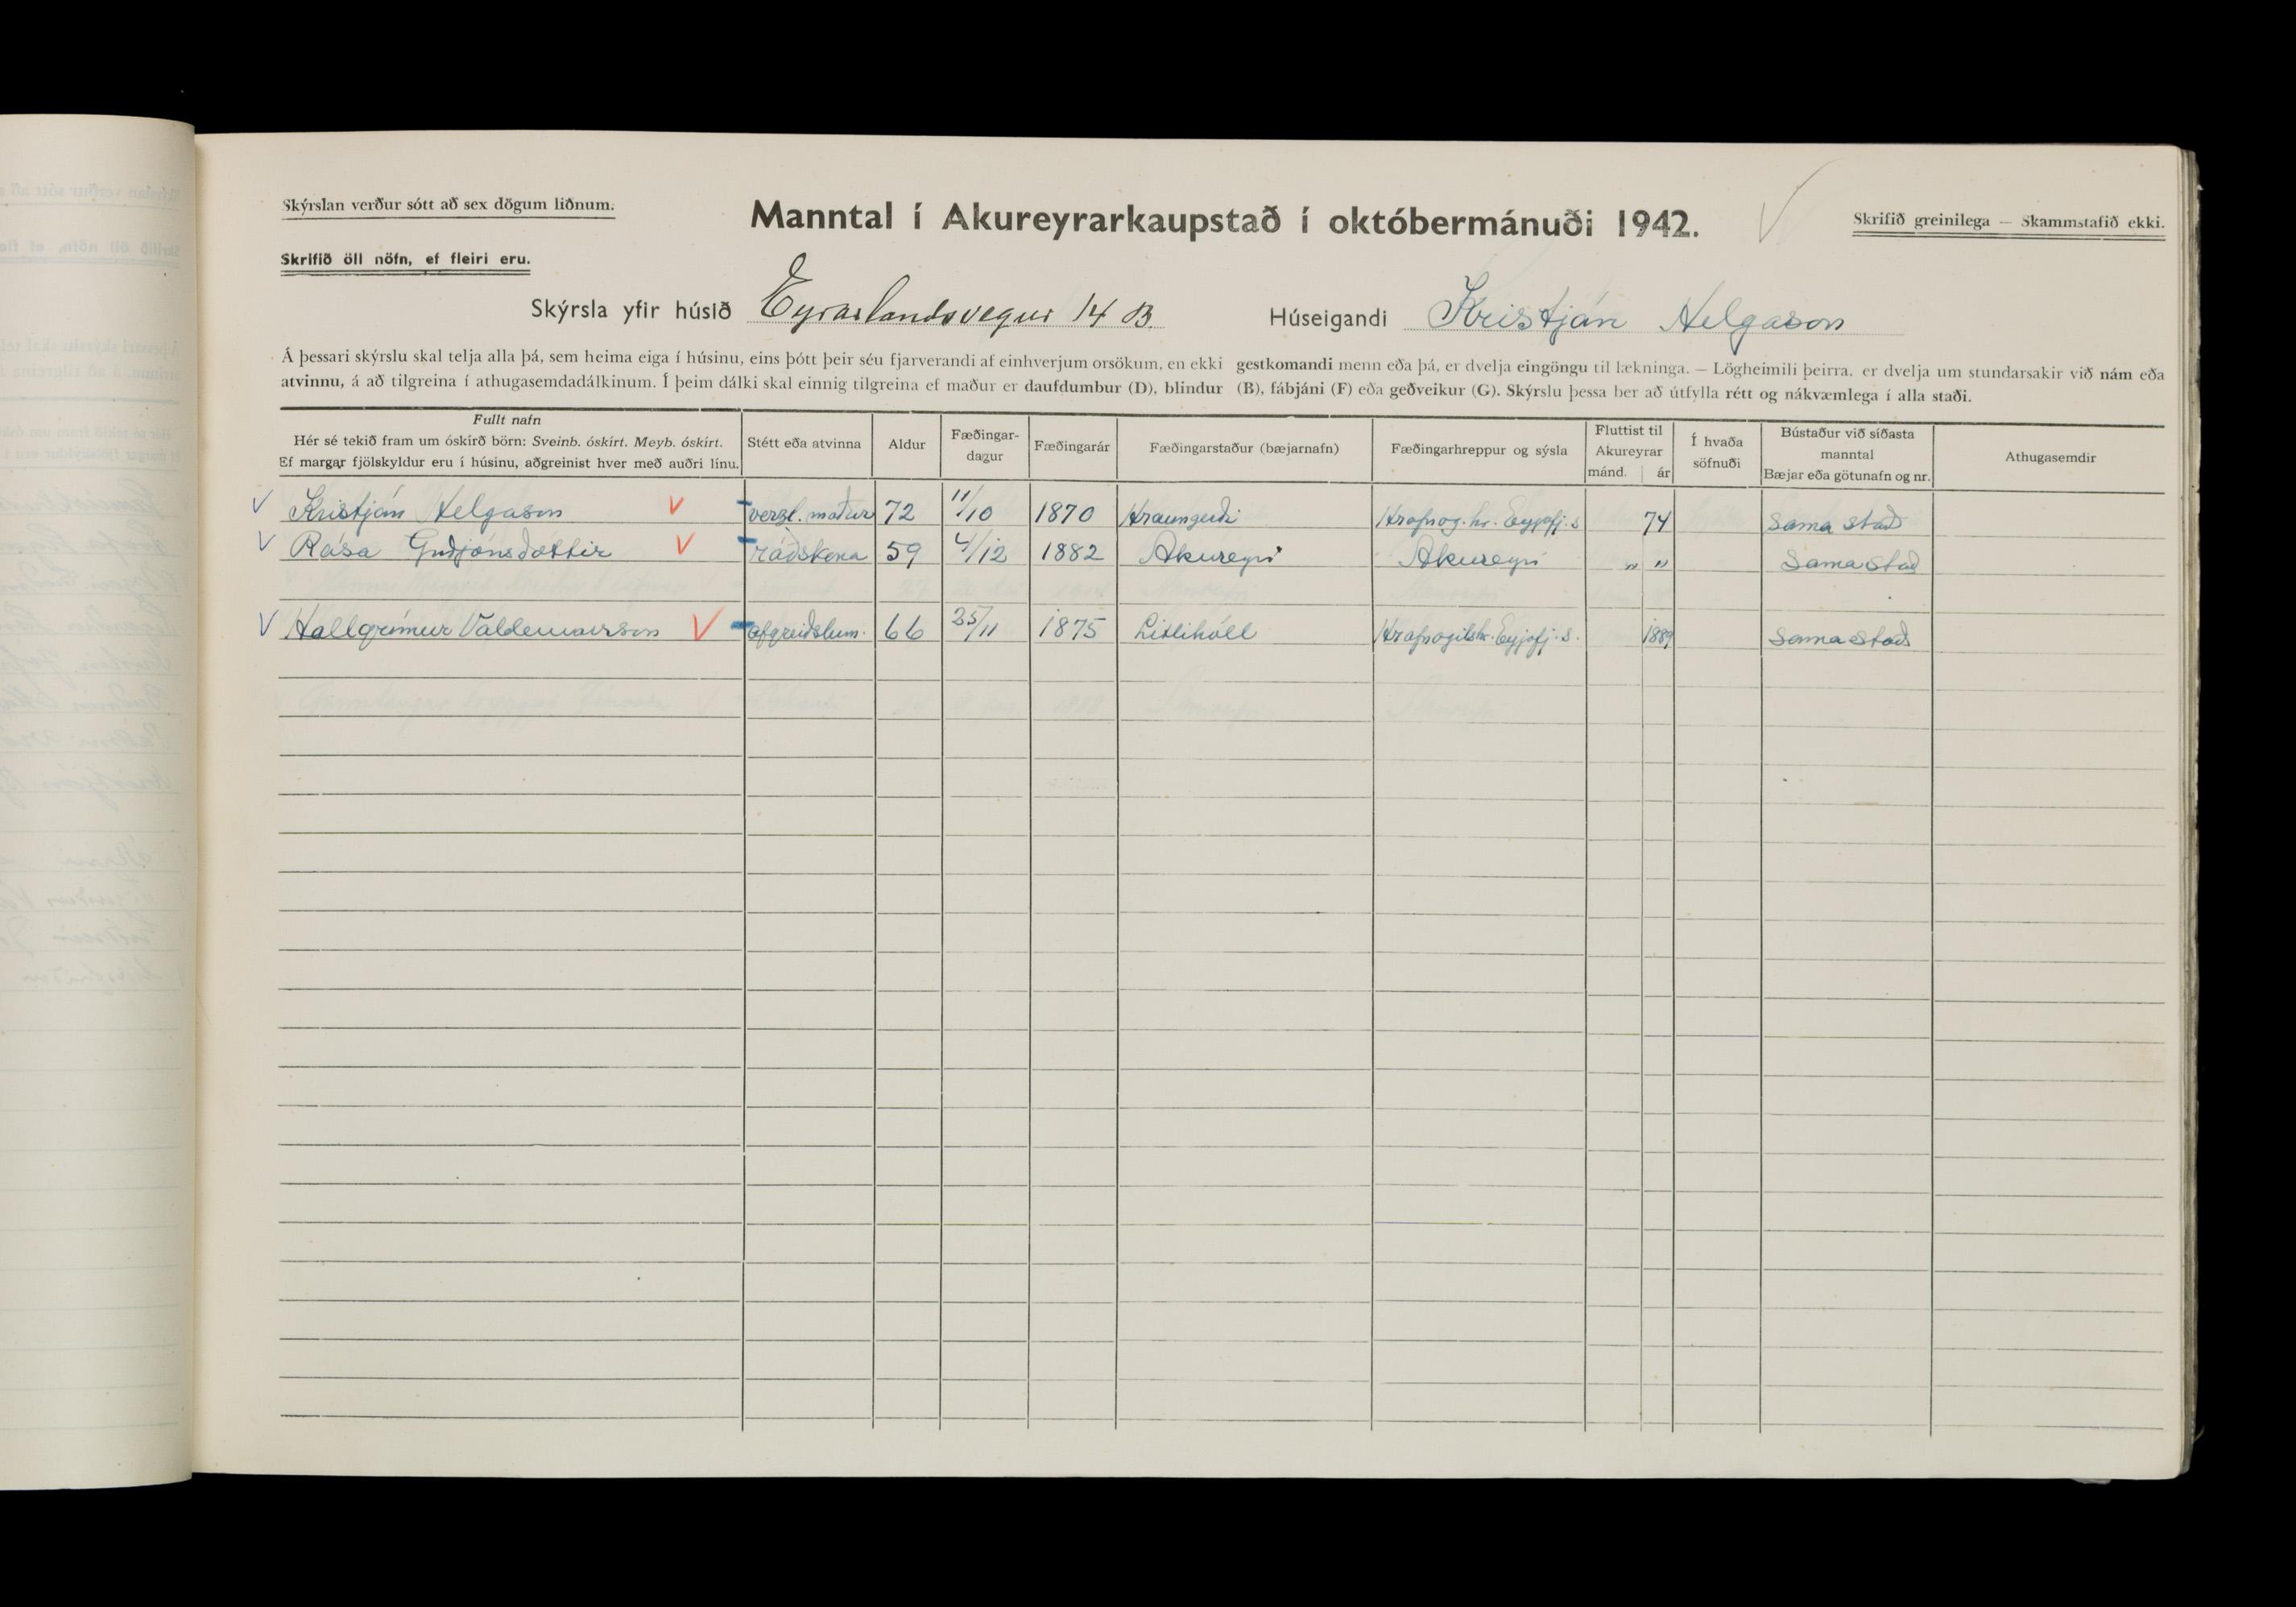 Skýrslan verður sótt að sex dögum liðnum.
Manntal í Akureyrarkaupstað í októbermánuði 1942.
Skrifið greinilega — Skammstafið ekki.
Skrifið öll nöfn, ef fleiri eru.
Skýrsla yfir húsið Eyrarlandsvegur 14 B. Húseigandi Kristján Helgason
Á þessari skýrslu skal telja alla þá, sem heima eiga í húsinu, eins þótt þeir séu fjarverandi af einhverjum orsökum, en ekki gestkomandi menn eða þá, er dvelja eingöngu til lækninga. — Lögheimili þeirra. er dvelja um stundarsakir við nám eða
atvinnu, á að tilgreina í athugasemdadálkinum. Í þeim dálki skal einnig tilgreina ef maður er daufdumbur (D), blindur (B), fábjáni (F) eða geðveikur (G). Skýrslu þessa ber að útfylla rétt og nákvæmlega í alla staði.
Fullt nafn
Hér sé tekið fram um óskírð börn: Sveinb. óskírt. Meyb. óskírt.
Ef margar fjölskyldur eru í húsinu, aðgreinist hver með auðri línu.
Stétt eða atvinna
Aldur
Fæðingar-
dagur
Fæðingarár
Fæðingarstaður (bæjarnafn)
Fæðingarhreppur og sýsla
Fluttist til
Akureyrar
mánd. ár
Í hvaða
söfnuði
Bústaður við síðasta
manntal
Bæjar eða götunafn og nr.
Athugasemdir
V Kristján Helgason V verzl. maður 72 11/10 1870 Hraungerði Hrafnag. hr. Eyjafj. s 74 Sama stað
V Rósa Guðjónsdóttir V ráðskona 59 4/12 1882 Akureyri Akureyri " " Sama stað
V Hallgrímur Valdemarsson V afgreiðslum. 66 25/11 1875 Litlihóll Hrafnagilshr. Eyjafj. s. 1889 Sama stað